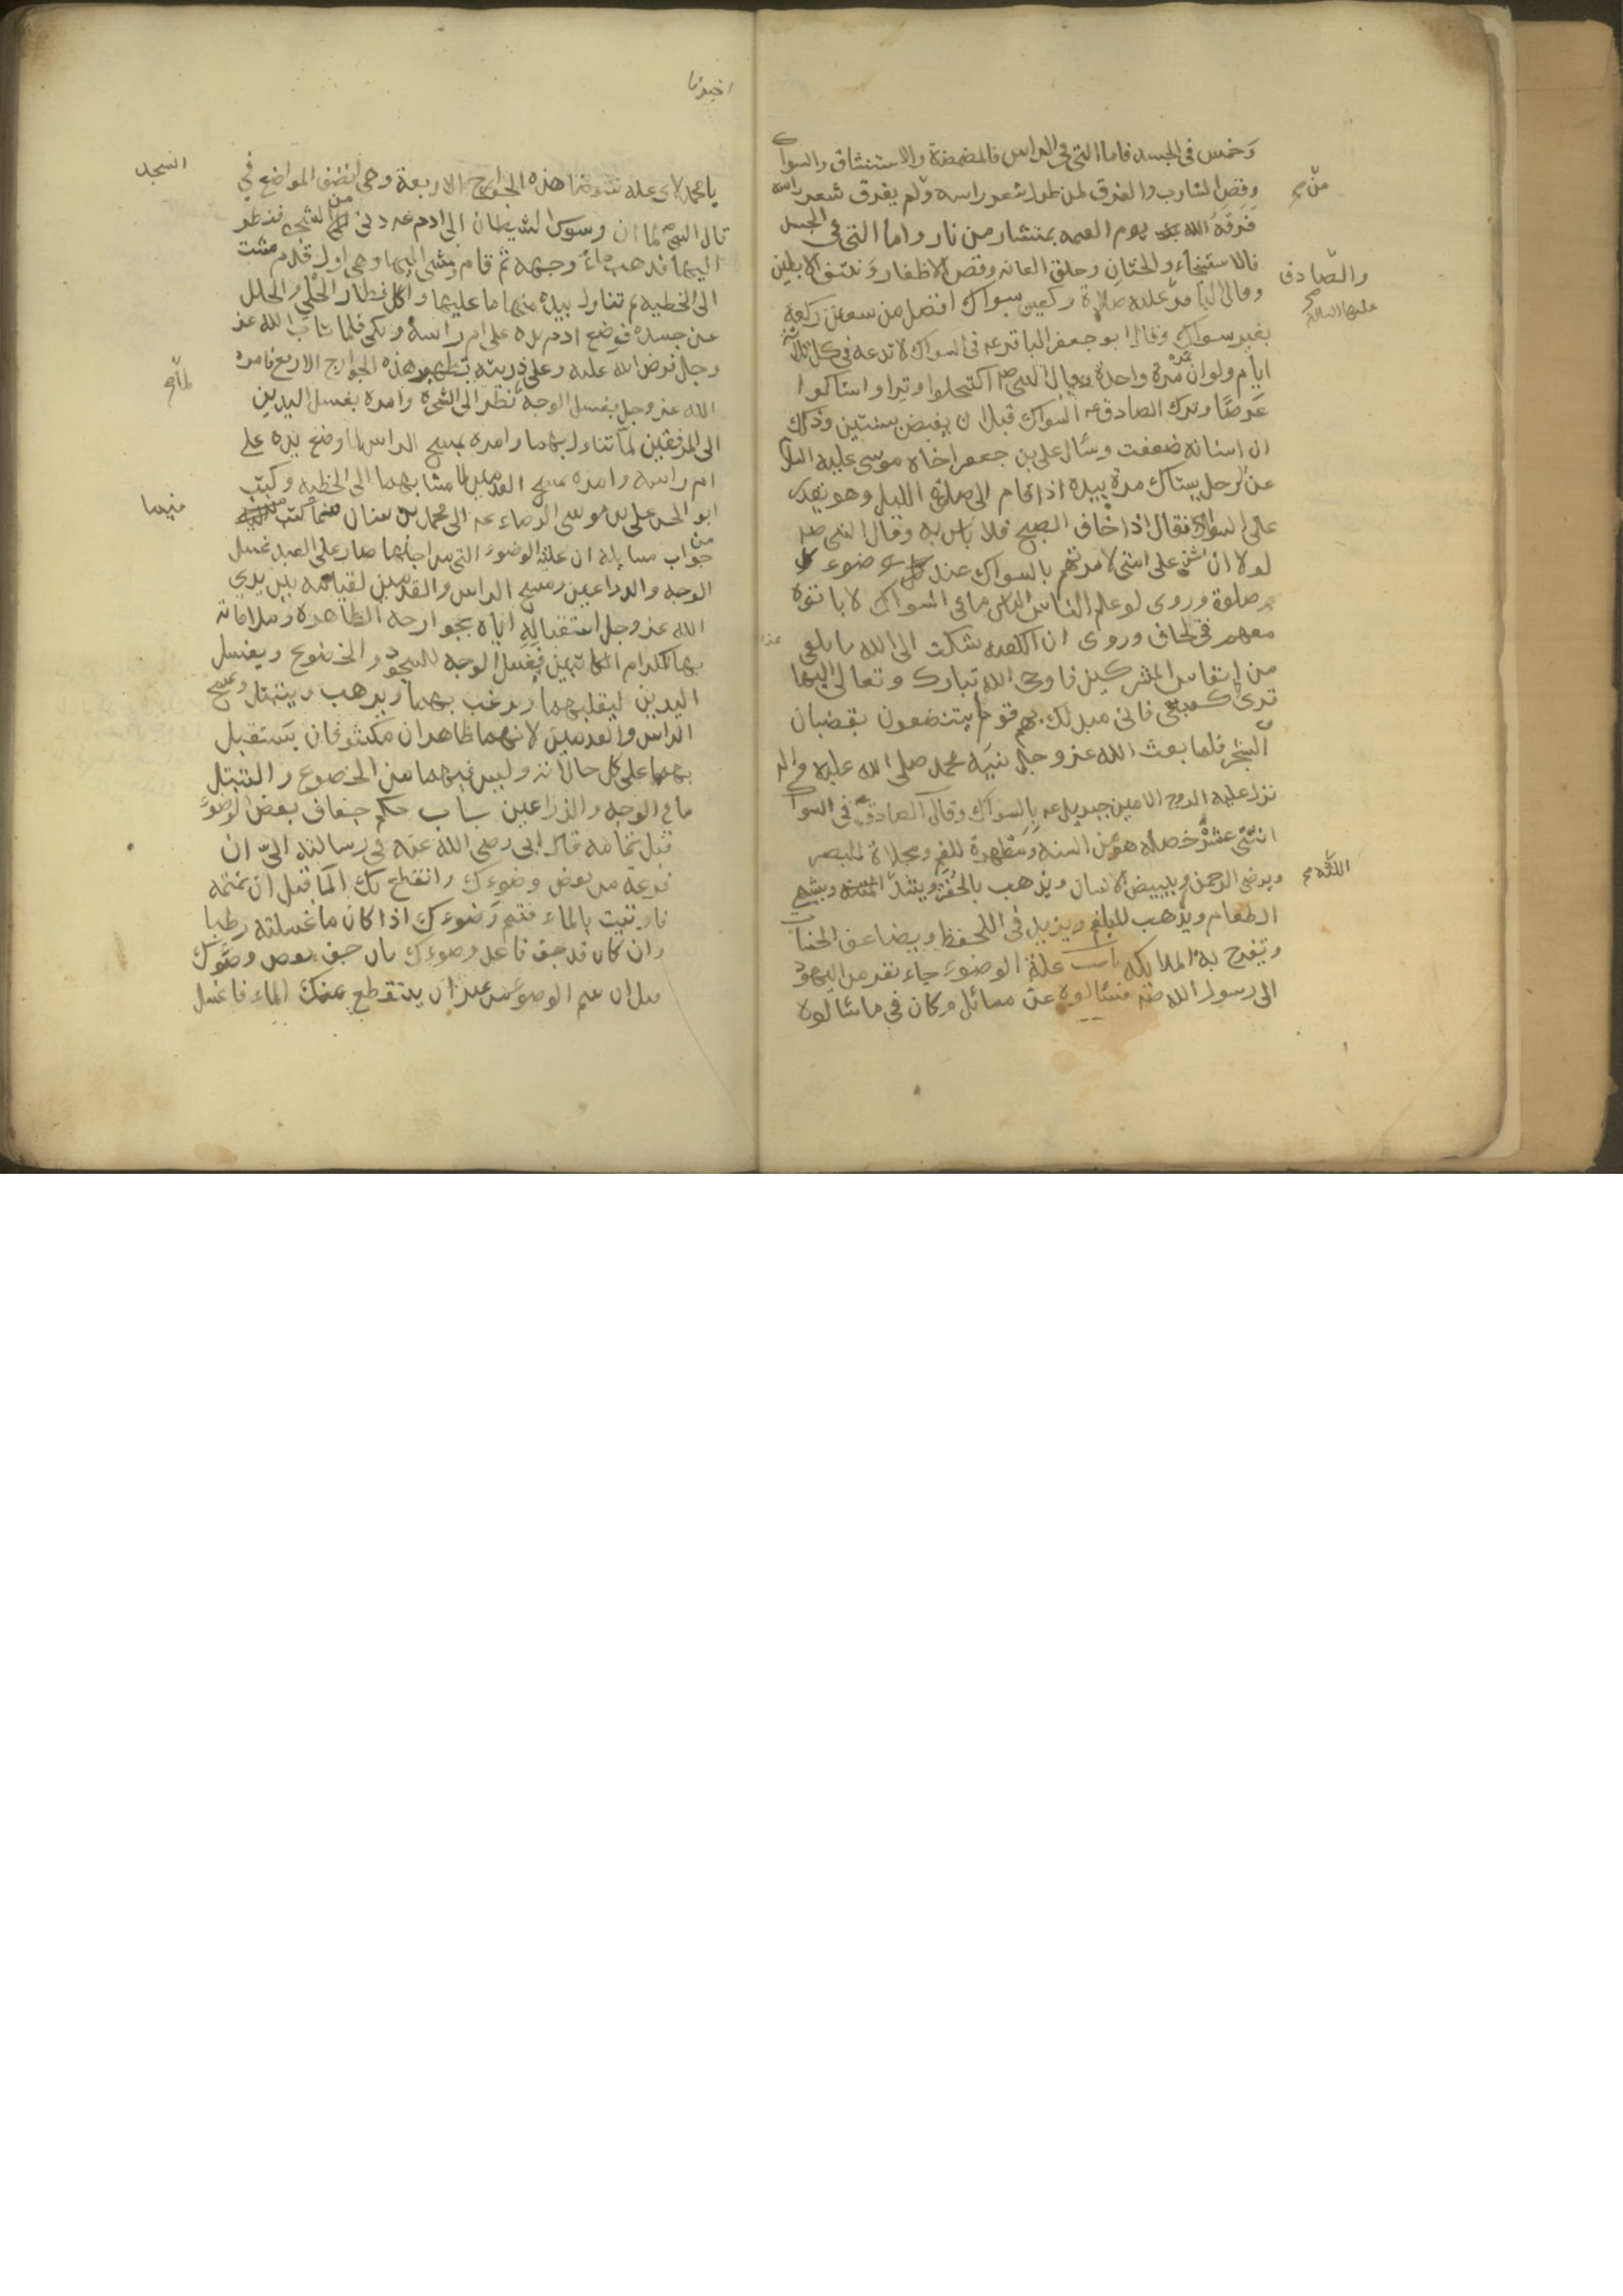 وَخمس فى الجسد فاما التى فى الراس فالمضمضة والاستنشاق والسواك
وقص الشارب والفرق لمن طول شعر راسه ولم يفرق شعر راسه
من
فَرَقَهُ الله يوم القيمه بمنشار من نار واما التى فى الجسد
فالاستنجاء والختان وحلق العانه وقص الاظفار وَنتف الابطين
والصّادق
عليهما السلام
وقال الباقر عليه صلاة ركعتين بسواك افضل من سبعين ركعة
بغير سواك وقال ابو جعفر الباقر عه فى السواك لا تدعه فى كل ثلاثة
ايام ولو ان تمره مرة واحدة وقال النبى صه اكتحلوا وترا واستاكوا
عَرضًا وترك الصادق عه السواك قبل ان يقبض بسنتين وذلك
ان اسنانه ضعفت وسأل على بن جعفر اخاه موسى عليه السلام
عن الرجل يستاك مرة بيده اذا قام الى صلوة الليل وهو يقدر
على السواك فقال اذا خاف الصبح فلا باس به وقال النبى صه
لولا ان اشق على امتى لامرتهم بالسواك عند وضوء كل
صلوة وروى لو علم الناس ما فى السواك لاباتوه
معهم فى لحاف وروى ان الكعبه شكت الى الله ما تلقى
من انفاس المشركين فاوحى الله تبارك وتعالى اليها
قرى كعبتى فانى مبدلك بهم قوما يتنضفون بقضبان
الشجر فلما بعث الله عز وجل نبيّه محمد صلى الله عليه واله
نزل عليه الروح الامين جبريل عه بالسواك وقال الصادق عه فى السواك
اثنتى عشرة خصله هو من السنه وَمَطهرة للفم ومجلاة للبصر
ويرضى الرحمن ويبيض الاسنان ويذهب بالحفر ويشدّ ويشهى
اللّثه
الطعام ويذهب للبلغم ويزيد فى الحفظ ويضاعف الحسنات
وتفرح به الملايكه باب علة الوضوء جاء نفر من اليهود
الى رسول الله صه فسئالوه عن مسائل وكان فى ما سئالوه
اخبرنا
يا محمد لاى عله توضا هذه الجوارح الاربعة وهى انضف المواضع فى
الجسد
قال النبى لما ان وسوس الشيطان الى ادم عه دنى من الشجره فنظر
اليها فذهب ماء وجهه ثم قام ومشى اليها وهى اول قدم مشت
الى الخطيه ثم تناول بيده منها ما عليها واكل فطار الحُلىّ والحلل
عن جسده فوضع ادم يده على ام راسه وبكى فلما تاب الله عز
وجل فرض الله عليه وعلى ذريته تطهير هذه الجوارح الاربع فامره
الله عز وجل بغسل الوجه نظر الى الشجرة وامره بغسل اليدين
لمّا
الى المرفقين لمّا تناول بهما وامره بمسح الراس لما وضع يده على
ام راسه وامره بمسح القدمين لما مشا بهما الى الخطيه وكتب
ابو الحسن على بن موسى الرضاء عه الى محمد بن سنان فيما كتب من
فيها
جواب مسايله ان علة الوضوء التى من اجلها صار على العبد غسل
الوجه والذراعين ومسح الراس والقدمين لقيامه بين يدى
الله عز وجل استقباله اياه بجوارحه الظاهرة وملاقاته
بها الكرام الكاتبين فيغسل الوجه للسجود والخضوع ويغسل
اليدين ليقلبهما ويرغب بهما ويرهب ويتبتل ويمسح
الراس والقدمين لانهما ظاهران مكشوفان يستقبل
بهما على كل حالاته وليس فيهما من الخضوع والتبتل
ما فى الوجه والذراعين باب حكم جفاف بعض الوضوء
قبل تمامه قال ابى رضى الله عنه فى رسالته الىّ ان
فرغت من بعض وضوءك وانقطع بك الما قبل ان تتمه
فاوتيت بالماء فتمم وَضوءك اذا كان ما غسلته رطبا
وان كان قد جف فاعد وضوءك وان جف بعض وضوءك
قبل ان تتم الوضوء من غير ان ينقطع عنك الماء فاغسل